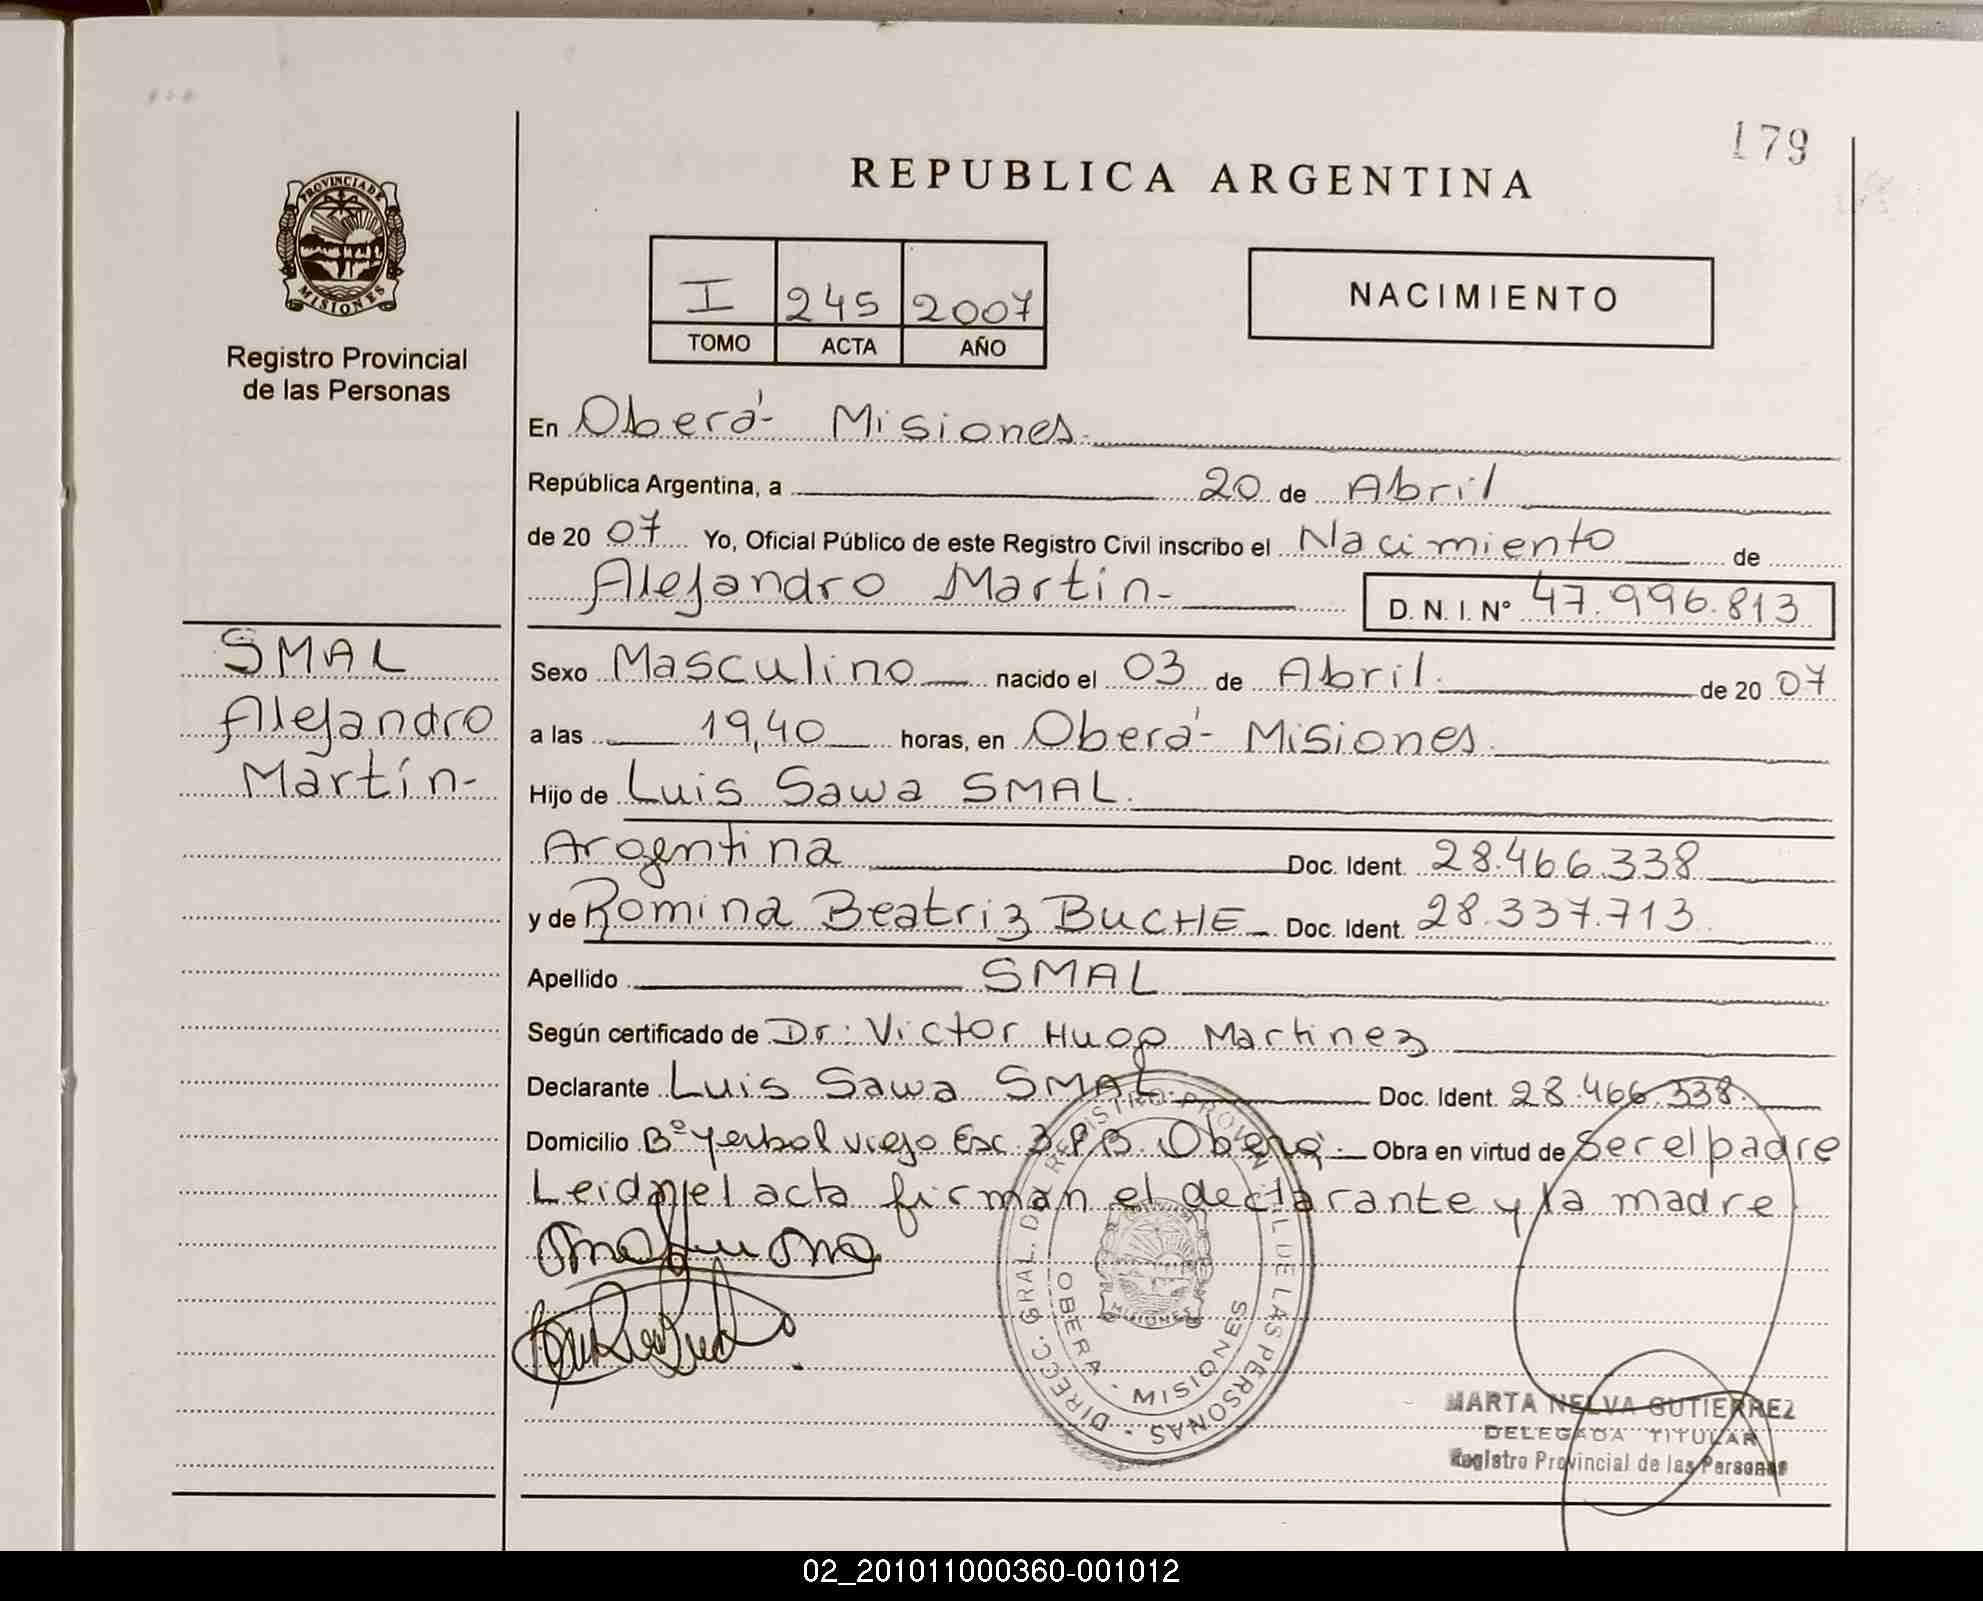 179
REPUBLICA ARGENTINA
PROVINCIA DE
MISIONES
Registro Provincial
de las Personas
I 245 2007
TOMO ACTA AÑO
NACIMIENTO
En Oberá- Misiones.
República Argentina, a 20 de Abril
de 20 07 Yo, Oficial Público de este Registro Civil inscribo el Nacimiento de
Alejandro Martín- D. N. I. Nº 47.996.813
SMAL
Alejandro
Martín-
Sexo Masculino nacido el 03 de Abril. de 20 07
a las 19,40 horas, en Oberá- Misiones.
Hijo de Luis Sawa SMAL.
Argentina Doc. Ident. 28.466.338
y de Romina Beatriz BUCHE Doc. Ident. 28.337.713
Apellido SMAL
Según certificado de Dr: Victor Hugo Martinez
Declarante Luis Sawa SMAL Doc. Ident. 28.466.338.
Domicilio Bº Yerbal viejo Esc. 3 P.B. Oberá.- Obra en virtud de Ser el padre
Leida el acta firman el declarante y la madre
DIRECC. GRAL. DE REGISTRO PROVINCIAL DE LAS PERSONAS
OBERA - MISIONES
MISIONES
MARTA NELVA GUTIERREZ
DELEGADA TITULAR
Registro Provincial de las Personas
02_201011000360-001012